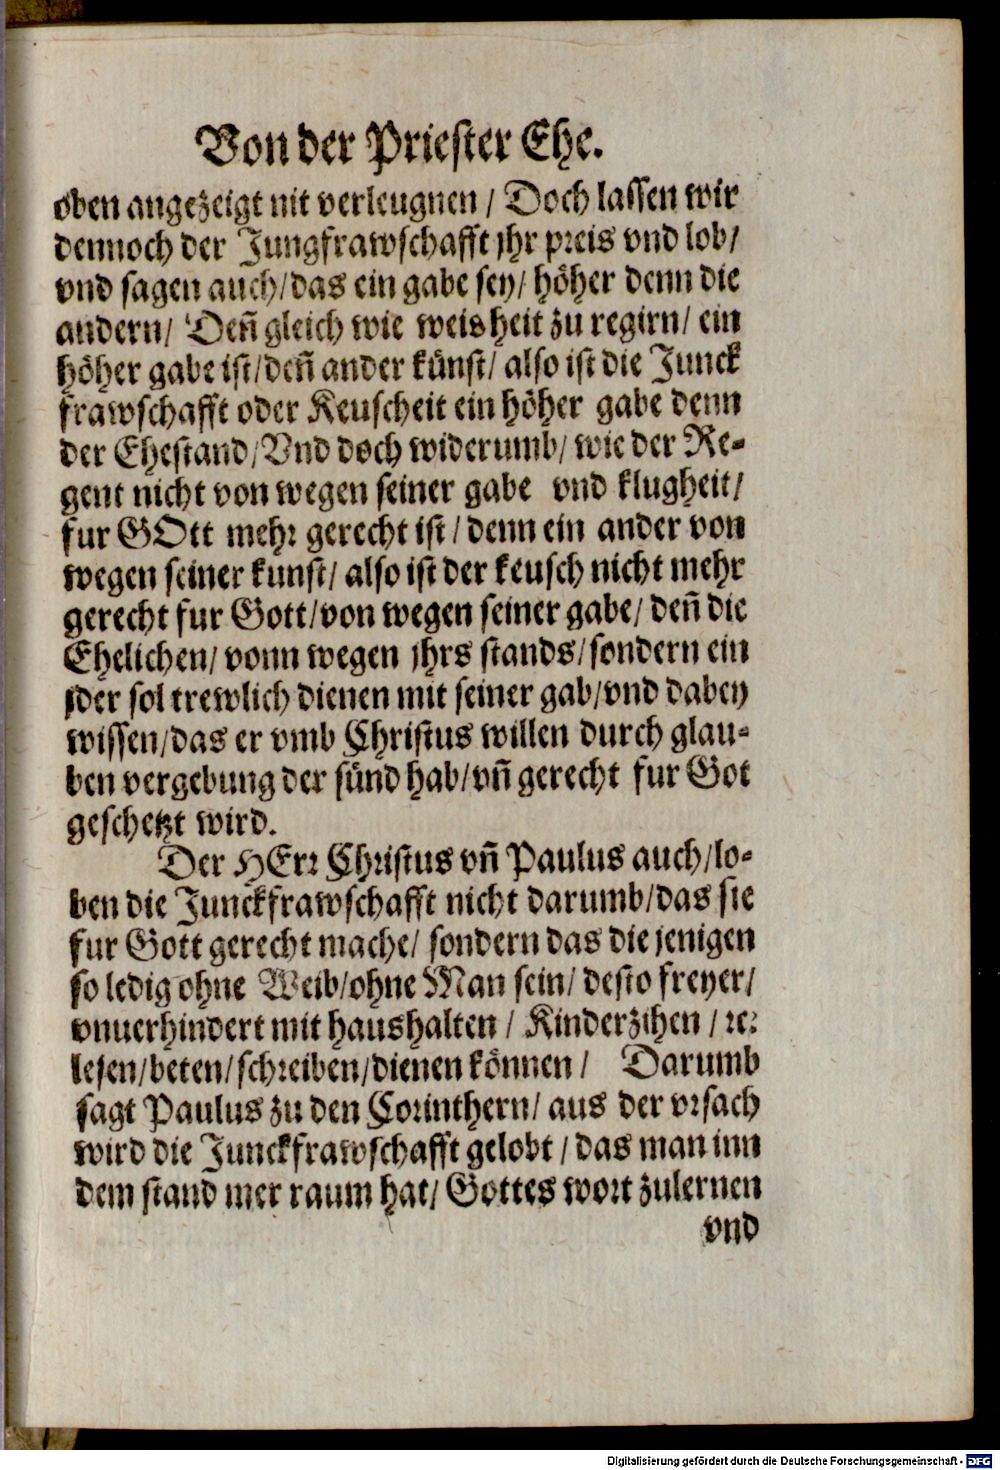 Von der Priester Ehe.
oben angezeigt nit verleugnen / Doch lassen wir
dennoch der Jungfrawschafft jhr preis vnd lob/
vnd sagen auch/das ein gabe sey/ höher denn die
andern/ Deñ gleich wie weisheit zu regirn/ ein
höher gabe ist/deñ ander künst/ also ist die Junck
frawschafft oder Keuscheit ein höher gabe denn
der Ehestand/Vnd doch widerumb/ wie der Re-
gent nicht von wegen seiner gabe vnd klugheit/
fur GOtt mehr gerecht ist / denn ein ander von
wegen seiner kunst/ also ist der keusch nicht mehr
gerecht fur Gott/von wegen seiner gabe/ deñ die
Ehelichen/ vonn wegen jhrs stands/sondern ein
jder sol trewlich dienen mit seiner gab/vnd dabey
wissen/das er vmb Christus willen durch glau-
ben vergebung der sünd hab/vñ gerecht fur Got
geschetzt wird.
Der HErr Christus vñ Paulus auch/lo-
ben die Junckfrawschafft nicht darumb/das sie
fur Gott gerecht mache/ sondern das die jenigen
so ledig ohne Weib/ohne Man sein/ desto freyer/
vnuerhindert mit haushalten / Kinderzihen / ꝛc.
lesen/beten/schreiben/dienen können / Darumb
sagt Paulus zu den Corinthern/ aus der vrsach
wird die Junckfrawschafft gelobt / das man inn
dem stand mer raum hat/ Gottes wort zulernen
vnd
Digitalisierung gefördert durch die Deutsche Forschungsgemeinschaft - DFG